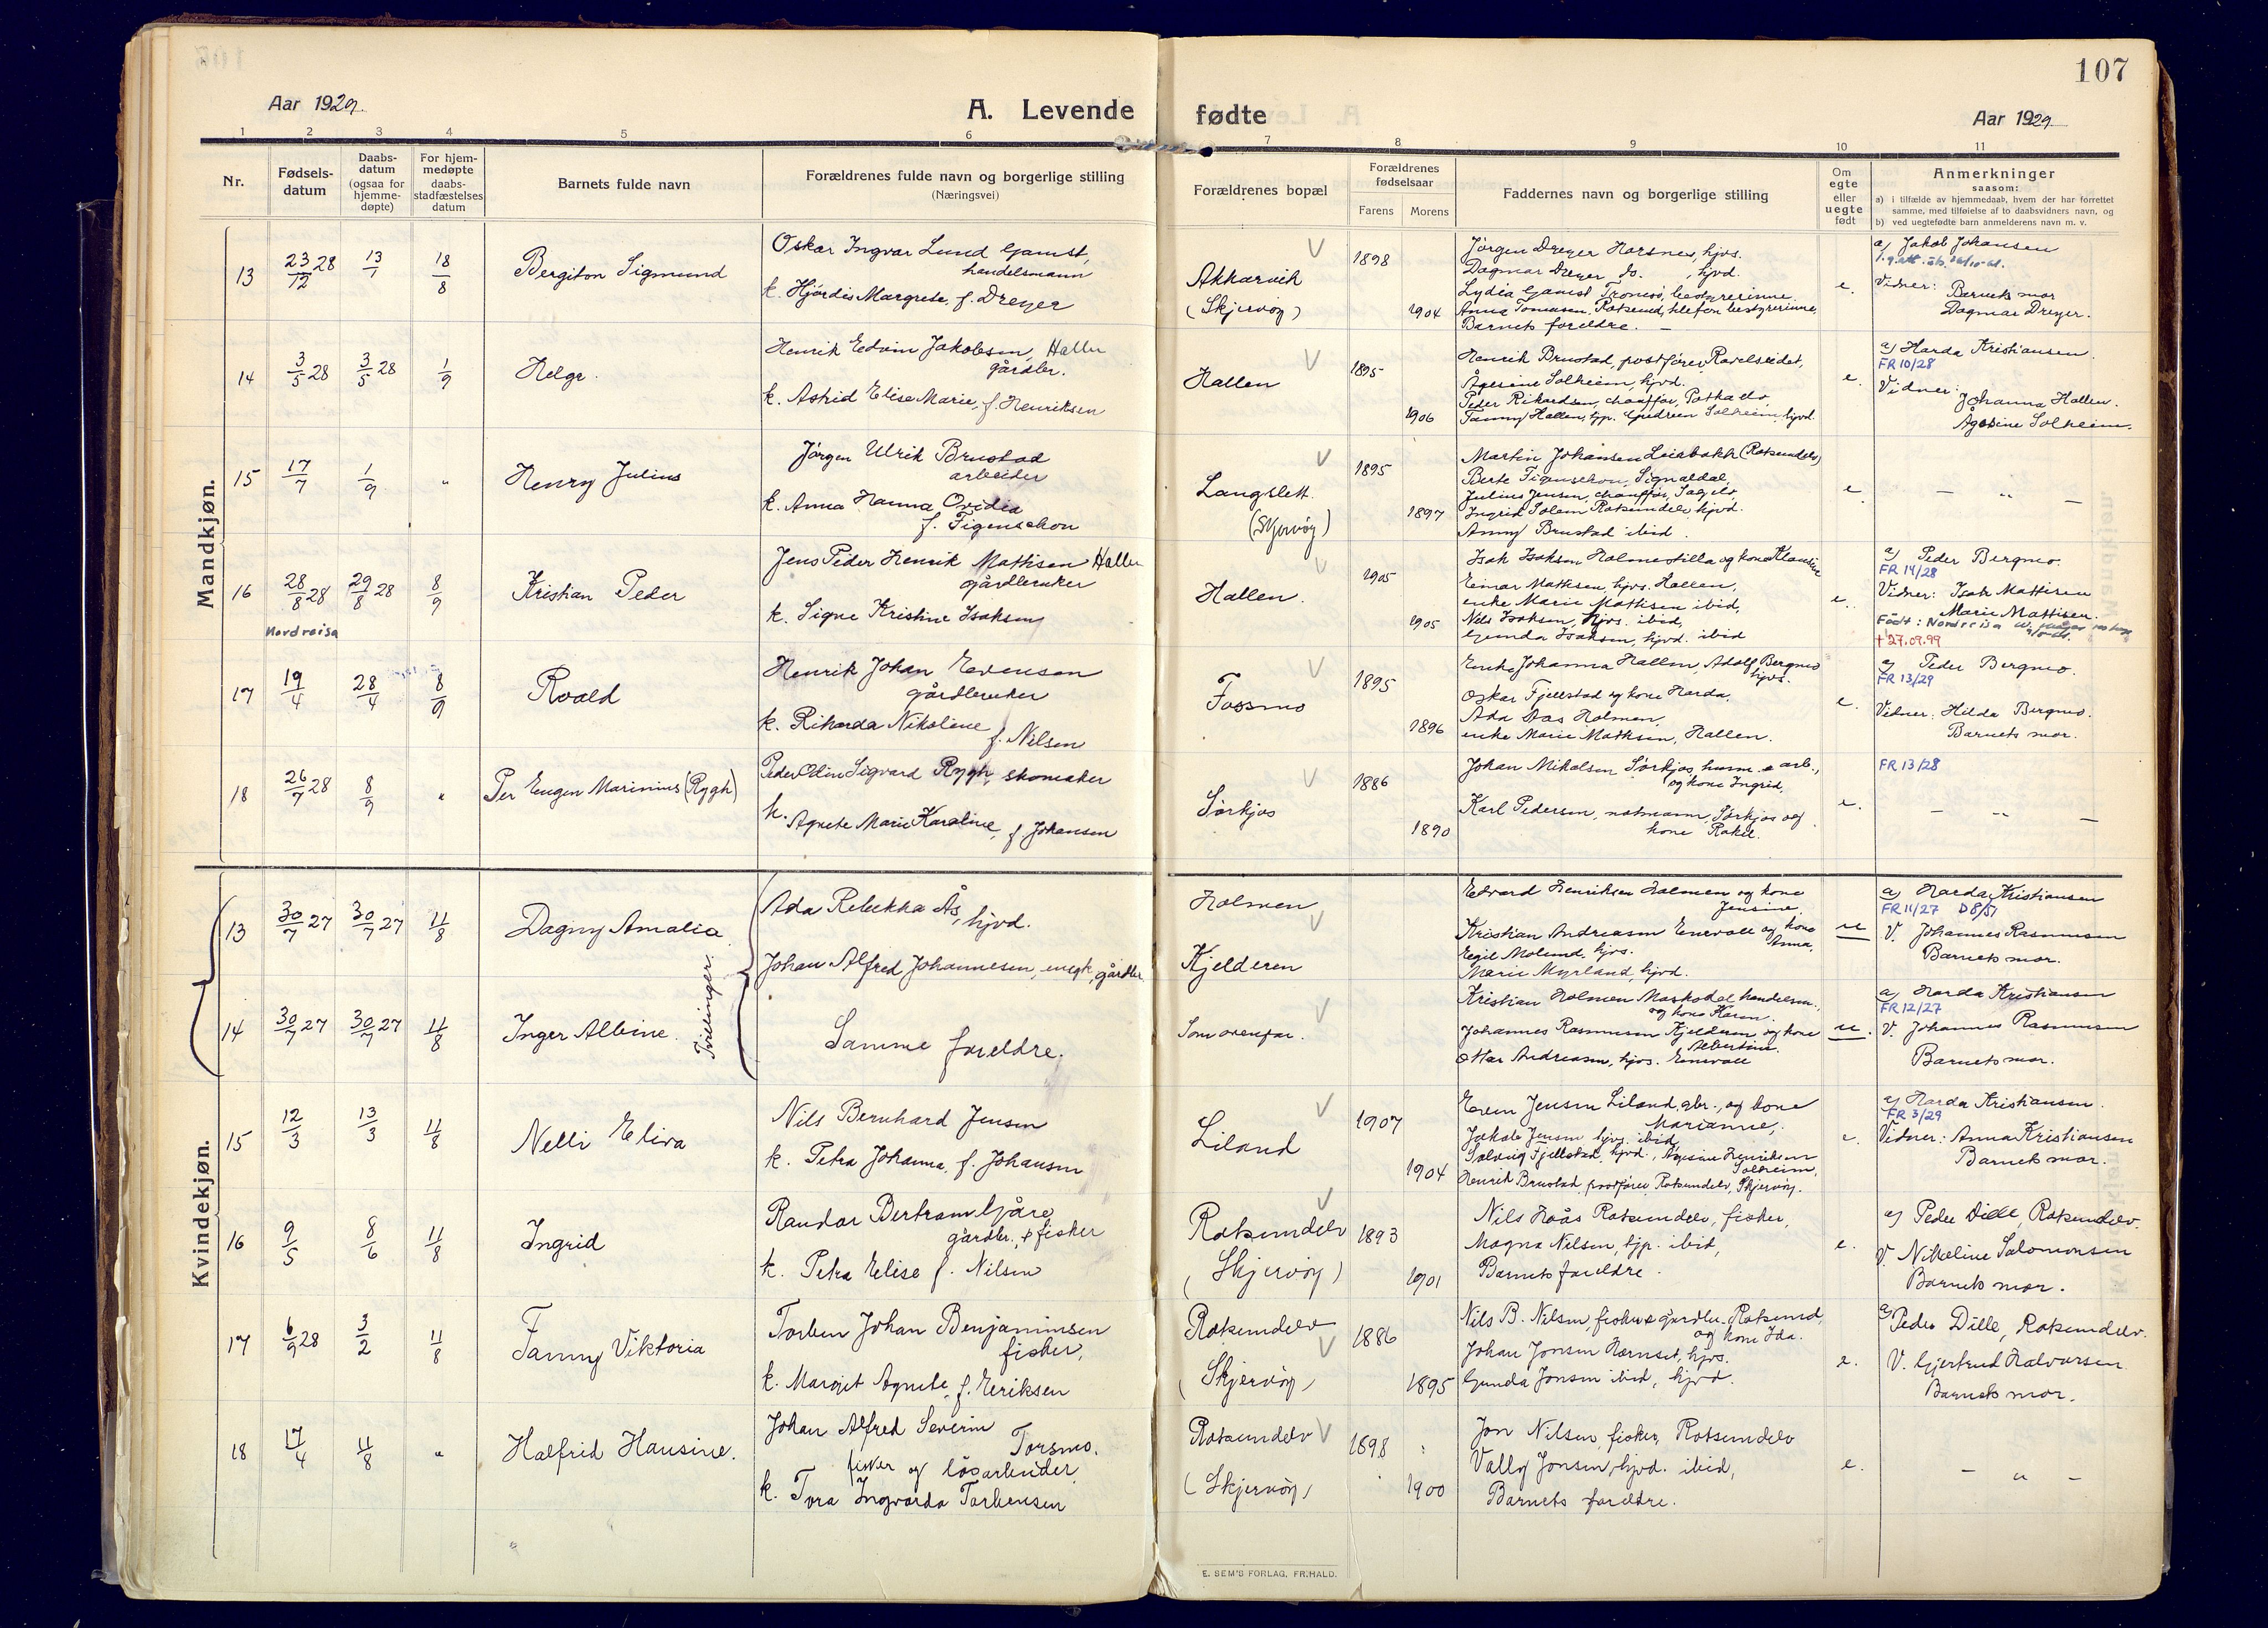 107
Aar 1929.
A. Levende fødte
Aar 1929
1 2 3 4 5 6 7 8 9 10 11
Nr.
Fødsels-
datum
Daabs-
datum
(ogsaa for
hjemme-
døpte)
For hjem-
medøpte
daabs-
stadfæstelses
datum
Barnets fulde navn
Forældrenes fulde navn og borgerlige stilling
(Næringsvei)
Forældrenes bopæl
Forældrenes
fødselsaar
Farens Morens
Faddernes navn og borgerlige stilling
Om
egte
eller
uegte
født
Anmerkninger
saasom:
a) i tilfælde av hjemmedaab, hvem der har forrettet
samme, med tilføielse af to daabsvidners navn, og
b) ved uegtefødte barn anmelderens navn m. v.
Mandkjøn.
13 23/12 28 13/1 18/8 Bergiton Sigmund
Oskar Ingvar Lund Gamst,
handelsmann
k. Hjördis Margrete, f. Dreyer
Akkarvik
(Skjervöy)
1898
1904
Jörgen Dreyer Havnnes, hjvs.
Dagmar Dreyer do., hjvd.
Lydia Gamst Tromsö, bestyrerinne
Anna Tomasen, Rotsund, telefon bestyrerinne,
Barnets foreldre. —
e.
a) Jakob Johansen
Vidner:
Barnets mor
Dagmar Dreyer.
14 3/5 28 3/5 28 1/9 Helge.
Henrik Edvin Jakobsen, Hallen
gårdbr.
k. Astrid Elise Marie, f. Henriksen
Hallen
1895
1906
Henrik Brustad, postförer, Ravelseidet,
Ågesine Solheim, hjvd.
Peder Rikardsen, chaufför,
Fanny Hallen, hjp. Gudrun Solheim, hjvd.
e.
a) Harda Kristiansen.
FR 10/28
Vidner:
Johanna Hallen.
Ågesine Solheim.
15 17/7 1/9 " Henry Julius
Jörgen Ulrik Brustad
arbeider
k. Anna Hanna Ovidia
f. Figenschou
Langslett.
(Skjervöy)
1895
1897
Martin Johansen Leirbakk (Rotsundelv)
Berte Figenschou, Signaldal,
Julius Jensen, chauffør, Sagelv,
Ingrid Solem Rotsundelv hjvd.
Anny Brustad ibid.
e
— " —
16 28/8 28 29/8 28 8/9 Kristian Peder
Nordreisa
Jens Peder Henrik Mathisen Hallen
gårdbruker
k. Signe Kristine Isaksen
Hallen.
1905
1905
Isak Isaksen Holmestilla og kone Klausine
Einar Mathisen, hjvs. Hallen,
enke Marie Mathisen ibid,
Nils Isaksen, hjvs. ibid,
Gunda Isaksen, hjvd. ibid
e.
a) Peder Bergmo.
FR 14/28
Vidner: Isak Mattisen
Marie Mattisen.
Födt: Nordreisa
† 27.09.99
17 19/4 28/4 8/9 Roald
Henrik Johan Evensen
gårdbruker
k. Rikarda Nikoline
f. Nilsen
Fossmo
1895
1896
Enke Johanna Hallen, Adolf Bergmo
hjvs.
Oskar Fjellstad og kone Harda,
Ada Aas Holmen,
enke Marie Mathisen, Hallen.
e.
a) Peder Bergmo.
FR 13/29
Vidner: Hilda Bergmo.
Barnets mor.
18 26/7 28 8/9 " Per Eugen Marinius (Rygh)
Peder Odin Sigvard Rygh, skomaker
k. Agnete Marie Karoline, f. Johansen
Sörkjos
1886
1890
Johan Mikalsen Sörkjos, husm. & arb.,
og kone Ingrid,
Karl Pedersen, notmann, Sörkjos og
kone Rakel.
e.
FR 13/28
— " —
Kvindekjøn.
13 30/7 27 30/7 27 11/8 Dagny Amalia.
Tvillinger.
Ada Rebekka Ås, hjvd.
Johan Alfred Johannesen, ungk., gårdbr.
Holmen
Kjelderen
Edvard Henriksen Holmen og kone
Jensine.
Kristian Andreasen Einevoll og kone
Anna,
Egil Molund, hjvs.
Marie Myrland, hjvd.
u
a) Harda Kristiansen
FR 11/27 D 8/51
V. Johannes Rasmussen
Barnets mor.
14 30/7 27 30/7 27 11/8 Inger Albine.
Samme foreldre.
Som ovenfor.
Kristian Holmen Maskodal handelsm.,
og kone Karen.
Johannes Rasmussen Kjelderen og kone
Albertine.
Ottar Andreasen, hjvs. Einevoll
u.
a) Harda Kristiansen
FR 12/27
V. Johannes Rasmussen
Barnets mor.
15 12/3 13/3 11/8 Nelli Elira
Nils Bernhard Jensen
k. Petra Johanna, f. Johansen
Liland
1907
1904
Even Jensen Liland, gbr., og kone
Marianne,
Jakob Jensen, hjvs. ibid,
Solveig Fjellstad, hjvd., Agesine Henriksen
Solheim,
Henrik Brustad, postförer Rotsundelv, Skjervöy.
e.
a) Harda Kristiansen.
FR 3/29
Vidner: Anna Kristiansen
Barnets mor.
16 9/5 8/6 11/8 Ingrid
Randor Bertram Gjåre
gårdbr. & fisker
k. Petra Elise f. Nilsen
Rotsundelv
(Skjervöy)
1893
1901
Nils Hoås Rotsundelv, fisker,
Magna Nilsen, hjp. ibid,
Barnets foreldre.
e.
a) Peder Dille, Rotsundelv.
V. Nikoline Salomonsen
Barnets mor.
17 6/9 28 3/2 11/8 Fanny Viktoria
Torben Johan Benjaminsen
fisker,
k. Margit Agnete, f. Eriksen
Rotsundelv
(Skjervöy)
1886
1895
Nils B. Nilsen, fisker & gårdbr. Rotsund,
og kone Ida.
Johan Jonsen Havnset, hjvs.
Gunda Jonsen ibid, hjvd.
e.
a) Peder Dille, Rotsundelv.
V. Gjertrud Halvorsen
Barnets mor.
18 17/4 11/8 " Halfrid Hansine.
Johan Alfred Severin
Torsmo.
fisker og lösarbeider
k. Tora Ingvarda Torbensen
Rotsundelv
(Skjervöy)
1898
1900
Jon Nilsen, fisker, Rotsundelv
Vally Jonsen, hjvd. ibid,
Barnets foreldre.
e.
— " —
E. SEM'S FORLAG, FR.HALD.